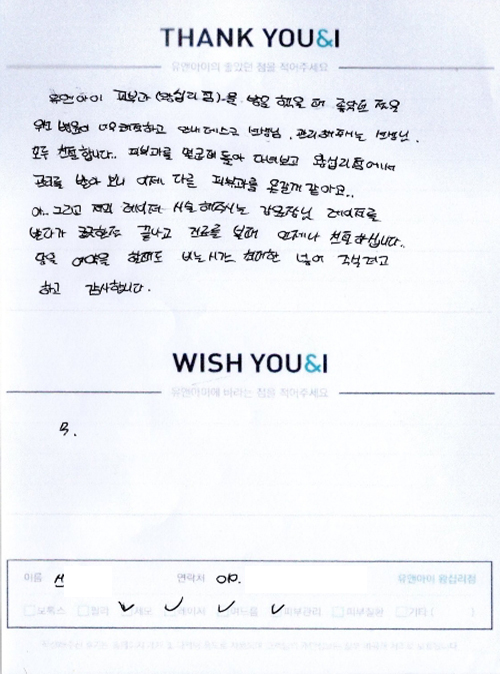 THANK YOU&I
유앤아이의 좋았던 점을 적어주세요
유앤아이 피부과 (왕십리점)을 방문 했을 때 좋았던 점은
우선 병원이 너무 깨끗하고 안내데스크 선생님, 관리해주시는 선생님,
모두 친절합니다.. 피부과를 몇군데 돌아 다녀보고 왕십리점에서
관리를 받아 보니 이제 다른 피부과를 못갈것 같아요..
아.. 그리고 제게 레이저 시술 해주시는 강원장님 레이저를
받다가 끝나고 진료를 볼때 언제나 친절하십니다..
당일 예약을 할때도 비는시간 최대한 넣어 주시려고
하고 감사합니다.
WISH YOU&I
유앤아이에 바라는 점을 적어주세요
이름 연락처 010. 유앤아이 왕십리점
보톡스 필러 제모 레이저 여드름 피부관리 피부질환 기타 ( )